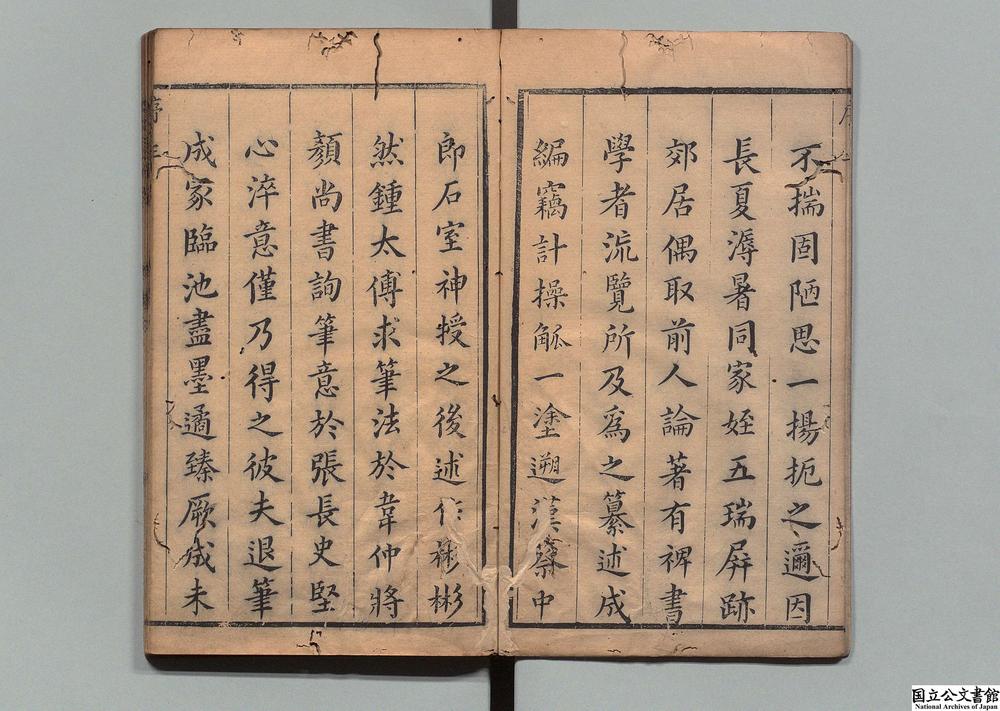 不揣固陋思一揚扼之邇因
長夏溽暑同家姪五瑞屏跡
郊居偶取前人論著有裨書
學者流覽所及為之纂述成
編竊計操觚一塗遡漢蔡中
郎石室神授之後述作彬彬
然鍾太傅求筆法於韋仲將
顏尚書詢筆意於張長史堅
心淬意僅乃得之彼夫退筆
成冢臨池盡墨遹臻厥成未
序
国立公文書館
National Archives of Japan